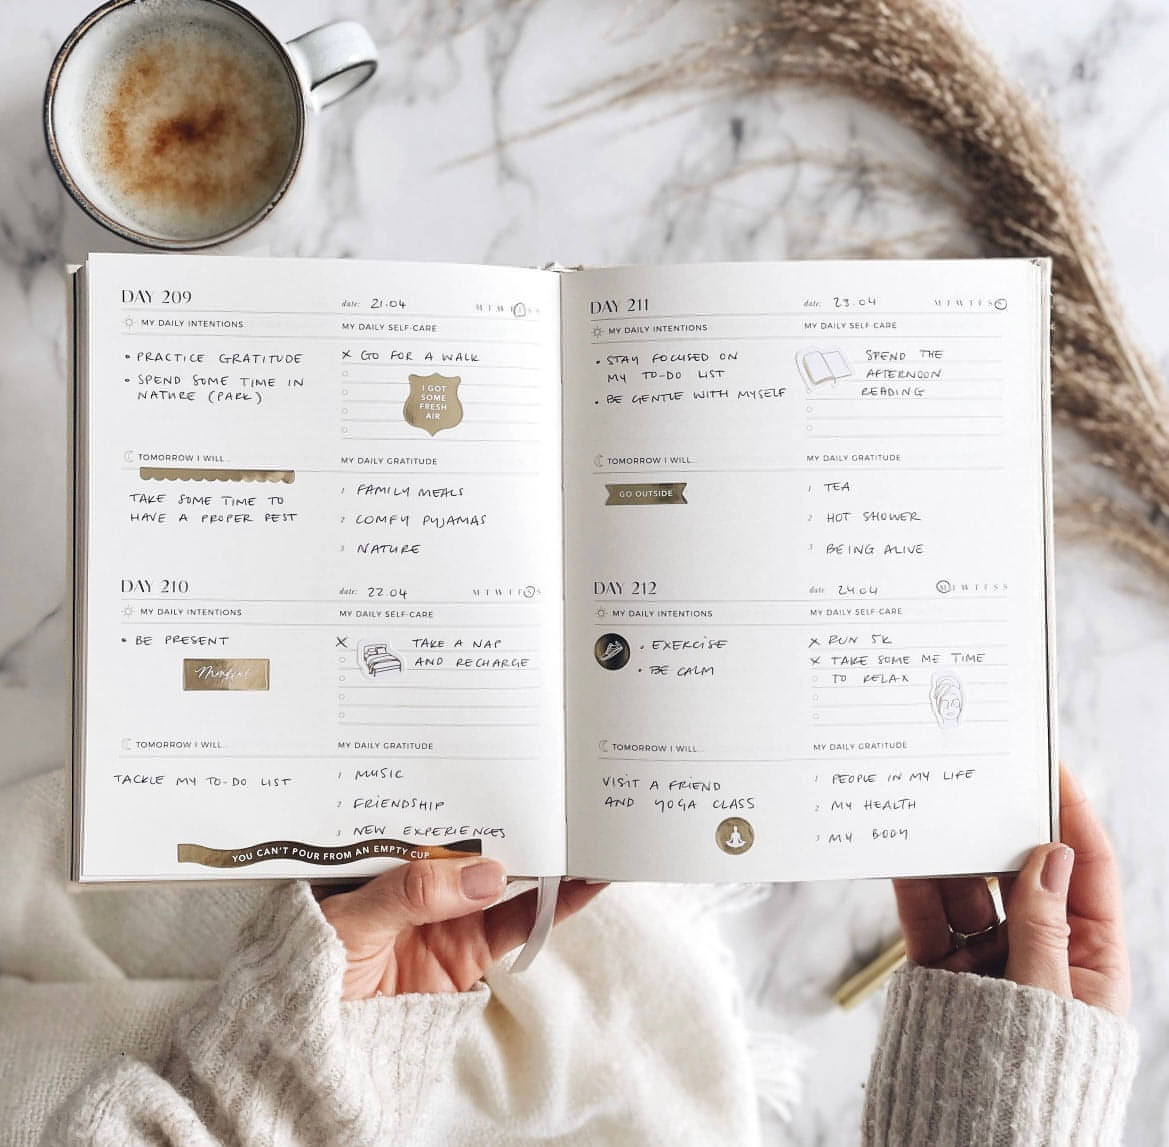 DAY 209
date: 21.04
M T W T F S S
MY DAILY INTENTIONS
• PRACTICE GRATITUDE
• SPEND SOME TIME IN
NATURE (PARK)
MY DAILY SELF-CARE
X GO FOR A WALK
I GOT
SOME
FRESH
AIR
TOMORROW I WILL...
TAKE SOME TIME TO
HAVE A PROPER REST
MY DAILY GRATITUDE
1 FAMILY MEALS
2 COMFY PYJAMAS
3 NATURE
DAY 210
date: 22.04
M T W T F S S
MY DAILY INTENTIONS
• BE PRESENT
Mindful
MY DAILY SELF-CARE
X TAKE A NAP
AND RECHARGE
TOMORROW I WILL...
TACKLE MY TO-DO LIST
MY DAILY GRATITUDE
1 MUSIC
2 FRIENDSHIP
3 NEW EXPERIENCES
YOU CAN'T POUR FROM AN EMPTY CUP
DAY 211
date: 23.04
M T W T F S S
MY DAILY INTENTIONS
• STAY FOCUSED ON
MY TO-DO LIST
• BE GENTLE WITH MYSELF
MY DAILY SELF-CARE
SPEND THE
AFTERNOON
READING
TOMORROW I WILL...
GO OUTSIDE
MY DAILY GRATITUDE
1 TEA
2 HOT SHOWER
3 BEING ALIVE
DAY 212
date: 24.04
M T W T F S S
MY DAILY INTENTIONS
• EXERCISE
• BE CALM
MY DAILY SELF-CARE
X RUN 5K
X TAKE SOME ME TIME
TO RELAX
TOMORROW I WILL...
VISIT A FRIEND
AND YOGA CLASS
MY DAILY GRATITUDE
1 PEOPLE IN MY LIFE
2 MY HEALTH
3 MY BODY